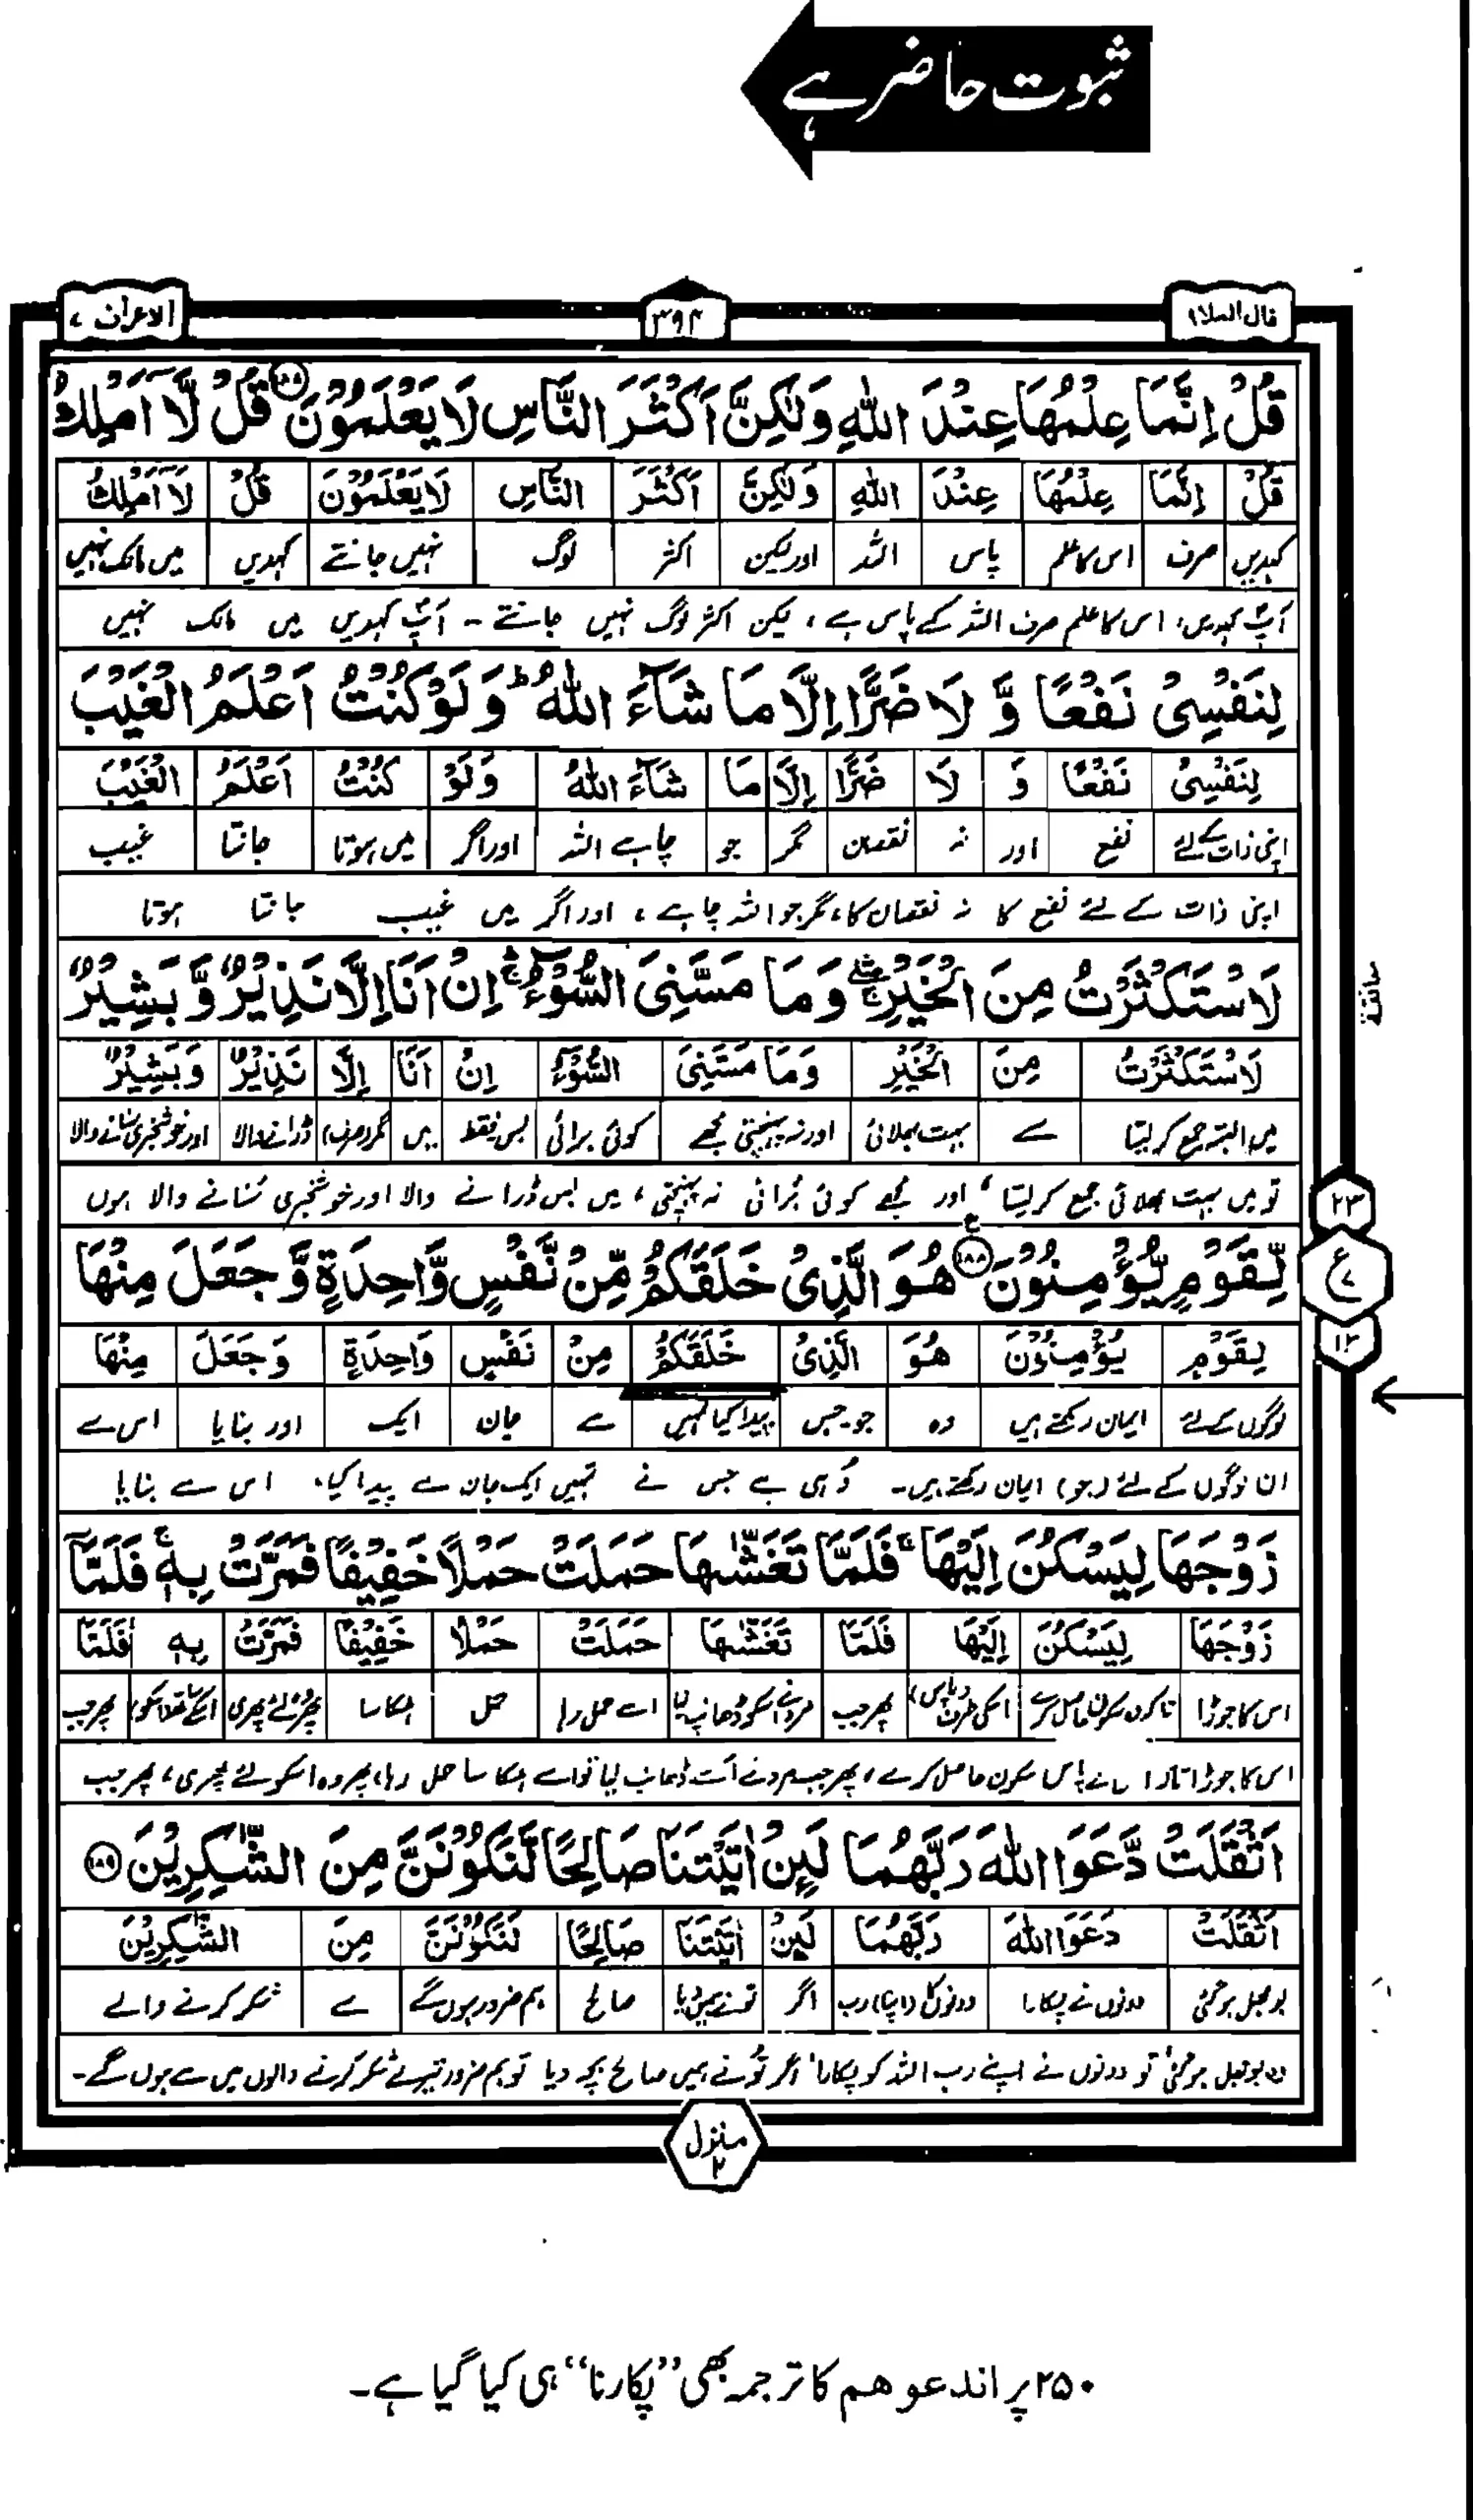 ثبوت حاضر ہے
قال الملا ۹
۳۹۴
الاعراف ۷
قُلْ اِنَّمَا عِلْمُهَا عِنْدَ اللّٰهِ وَلٰكِنَّ اَكْثَرَ النَّاسِ لَا يَعْلَمُوْنَ ۝ قُلْ لَّآ اَمْلِكُ
قُلْ اِنَّمَا عِلْمُهَا عِنْدَ اللّٰهِ وَلٰكِنَّ اَكْثَرَ النَّاسِ لَا يَعْلَمُوْنَ قُلْ لَآ اَمْلِكُ
کہدیں صرف اس کا علم پاس اللہ اور لیکن اکثر لوگ نہیں جانتے کہدیں میں مالک نہیں
آپؐ کہدیں، اس کا علم صرف اللہ کے پاس ہے، لیکن اکثر لوگ نہیں جانتے ۔ آپؐ کہدیں میں مالک نہیں
لِنَفْسِيْ نَفْعًا وَّ لَا ضَرًّا اِلَّا مَا شَآءَ اللّٰهُ ؕ وَلَوْ كُنْتُ اَعْلَمُ الْغَيْبَ
لِنَفْسِيْ نَفْعًا وَ لَا ضَرًّا اِلَّا مَا شَآءَ اللّٰهُ وَلَوْ كُنْتُ اَعْلَمُ الْغَيْبَ
اپنی ذات کے لئے نفع اور نہ نقصان مگر جو چاہے اللہ اور اگر میں ہوتا جانتا غیب
اپنی ذات کے لئے نفع کا نہ نقصان کا، مگر جو اللہ چاہے، اور اگر میں غیب جانتا ہوتا
لَاسْتَكْثَرْتُ مِنَ الْخَيْرِ ۛۚ وَمَا مَسَّنِيَ السُّوْٓءُ ۛۚ اِنْ اَنَا اِلَّا نَذِيْرٌ وَّبَشِيْرٌ
لَاسْتَكْثَرْتُ مِنَ الْخَيْرِ وَمَا مَسَّنِيَ السُّوْٓءُ اِنْ اَنَا اِلَّا نَذِيْرٌ وَبَشِيْرٌ
میں البتہ جمع کر لیتا سے بہت بھلائی اور نہ پہنچتی مجھے کوئی برائی بس فقط میں مگر (صرف) ڈرانے والا اور خوشخبری سنانے والا
تو میں بہت بھلائی جمع کر لیتا، اور مجھے کوئی برائی نہ پہنچتی، میں بس ڈرانے والا اور خوشخبری سنانے والا ہوں
لِّقَوْمٍ يُّؤْمِنُوْنَ ۝۱۸۸ هُوَ الَّذِيْ خَلَقَكُمْ مِّنْ نَّفْسٍ وَّاحِدَةٍ وَّجَعَلَ مِنْهَا
۲۳
ع
۱۳
لِقَوْمٍ يُؤْمِنُوْنَ هُوَ الَّذِيْ خَلَقَكُمْ مِنْ نَفْسٍ وَاحِدَةٍ وَجَعَلَ مِنْهَا
لوگوں کے لئے ایمان رکھتے ہیں وہ جو۔جس پیدا کیا تمہیں سے جان ایک اور بنایا اس سے
ان لوگوں کے لئے (جو) ایمان رکھتے ہیں۔ وہی ہے جس نے تمہیں ایک جان سے پیدا کیا، اس سے بنایا
زَوْجَهَا لِيَسْكُنَ اِلَيْهَا ۚ فَلَمَّا تَغَشّٰىهَا حَمَلَتْ حَمْلًا خَفِيْفًا فَمَرَّتْ بِهٖ ۚ فَلَمَّآ
زَوْجَهَا لِيَسْكُنَ اِلَيْهَا فَلَمَّا تَغَشّٰىهَا حَمَلَتْ حَمْلًا خَفِيْفًا فَمَرَّتْ بِهٖ فَلَمَّا
اس کا جوڑا تاکہ وہ سکون حاصل کرے اسکی طرف (پاس) پھر جب مرد نے اسکو ڈھانپ لیا اسے حمل رہا حمل ہلکا سا پھر وہ لئے پھری اسکے ساتھ (اسکو) پھر جب
اس کا جوڑا تاکہ اس کے پاس سکون حاصل کرے، پھر جب مرد نے اسے ڈھانپ لیا تو اسے ہلکا سا حمل رہا، پھر وہ اسکو لئے پھری، پھر جب
اَثْقَلَتْ دَّعَوَا اللّٰهَ رَبَّهُمَا لَىِٕنْ اٰتَيْتَنَا صَالِحًا لَّنَكُوْنَنَّ مِنَ الشّٰكِرِيْنَ ۝۱۸۹
اَثْقَلَتْ دَعَوَا اللّٰهَ رَبَّهُمَا لَىِٕنْ اٰتَيْتَنَا صَالِحًا لَنَكُوْنَنَّ مِنَ الشّٰكِرِيْنَ
بوجھل ہو گئی دونوں نے پکارا دونوں کا (اپنا) رب اگر تو نے ہمیں دیا صالح ہم ضرور ہوں گے سے شکر کرنے والے
وہ بوجھل ہو گئی تو دونوں نے اپنے رب اللہ کو پکارا، اگر تُو نے ہمیں صالح بچہ دیا تو ہم ضرور تیرے شکر کرنے والوں میں سے ہوں گے۔
منزل ۲
۲۵۰ پر اند عو ھم کا ترجمہ بھی ”پکارنا“ ہی کیا گیا ہے۔